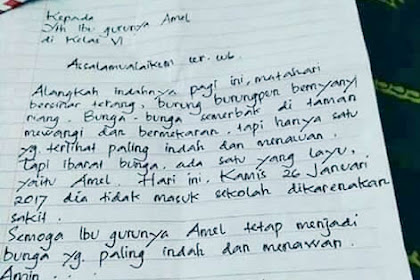 Kepada
Yth Ibu gurunya Amel
di Kelas VI
Assalamualaikem wr. wb.
Alangkah indahnya pagi ini, matahari
bersinar terang, burung burungpun bernyanyi
riang. Bunga-bunga semerbak di taman
mewangi dan bermekaran. tapi hanya satu
yg. terlihat paling indah dan menawan.
Tapi ibarat bunga, ada satu yang layu,
yaitu Amel. Hari ini, Kamis 26 Januari
2017 dia tidak masuk sekolah dikarenakan
sakit.
Semoga Ibu gurunya Amel tetap menjadi
bunga yg. paling indah dan menawan.
Amin...